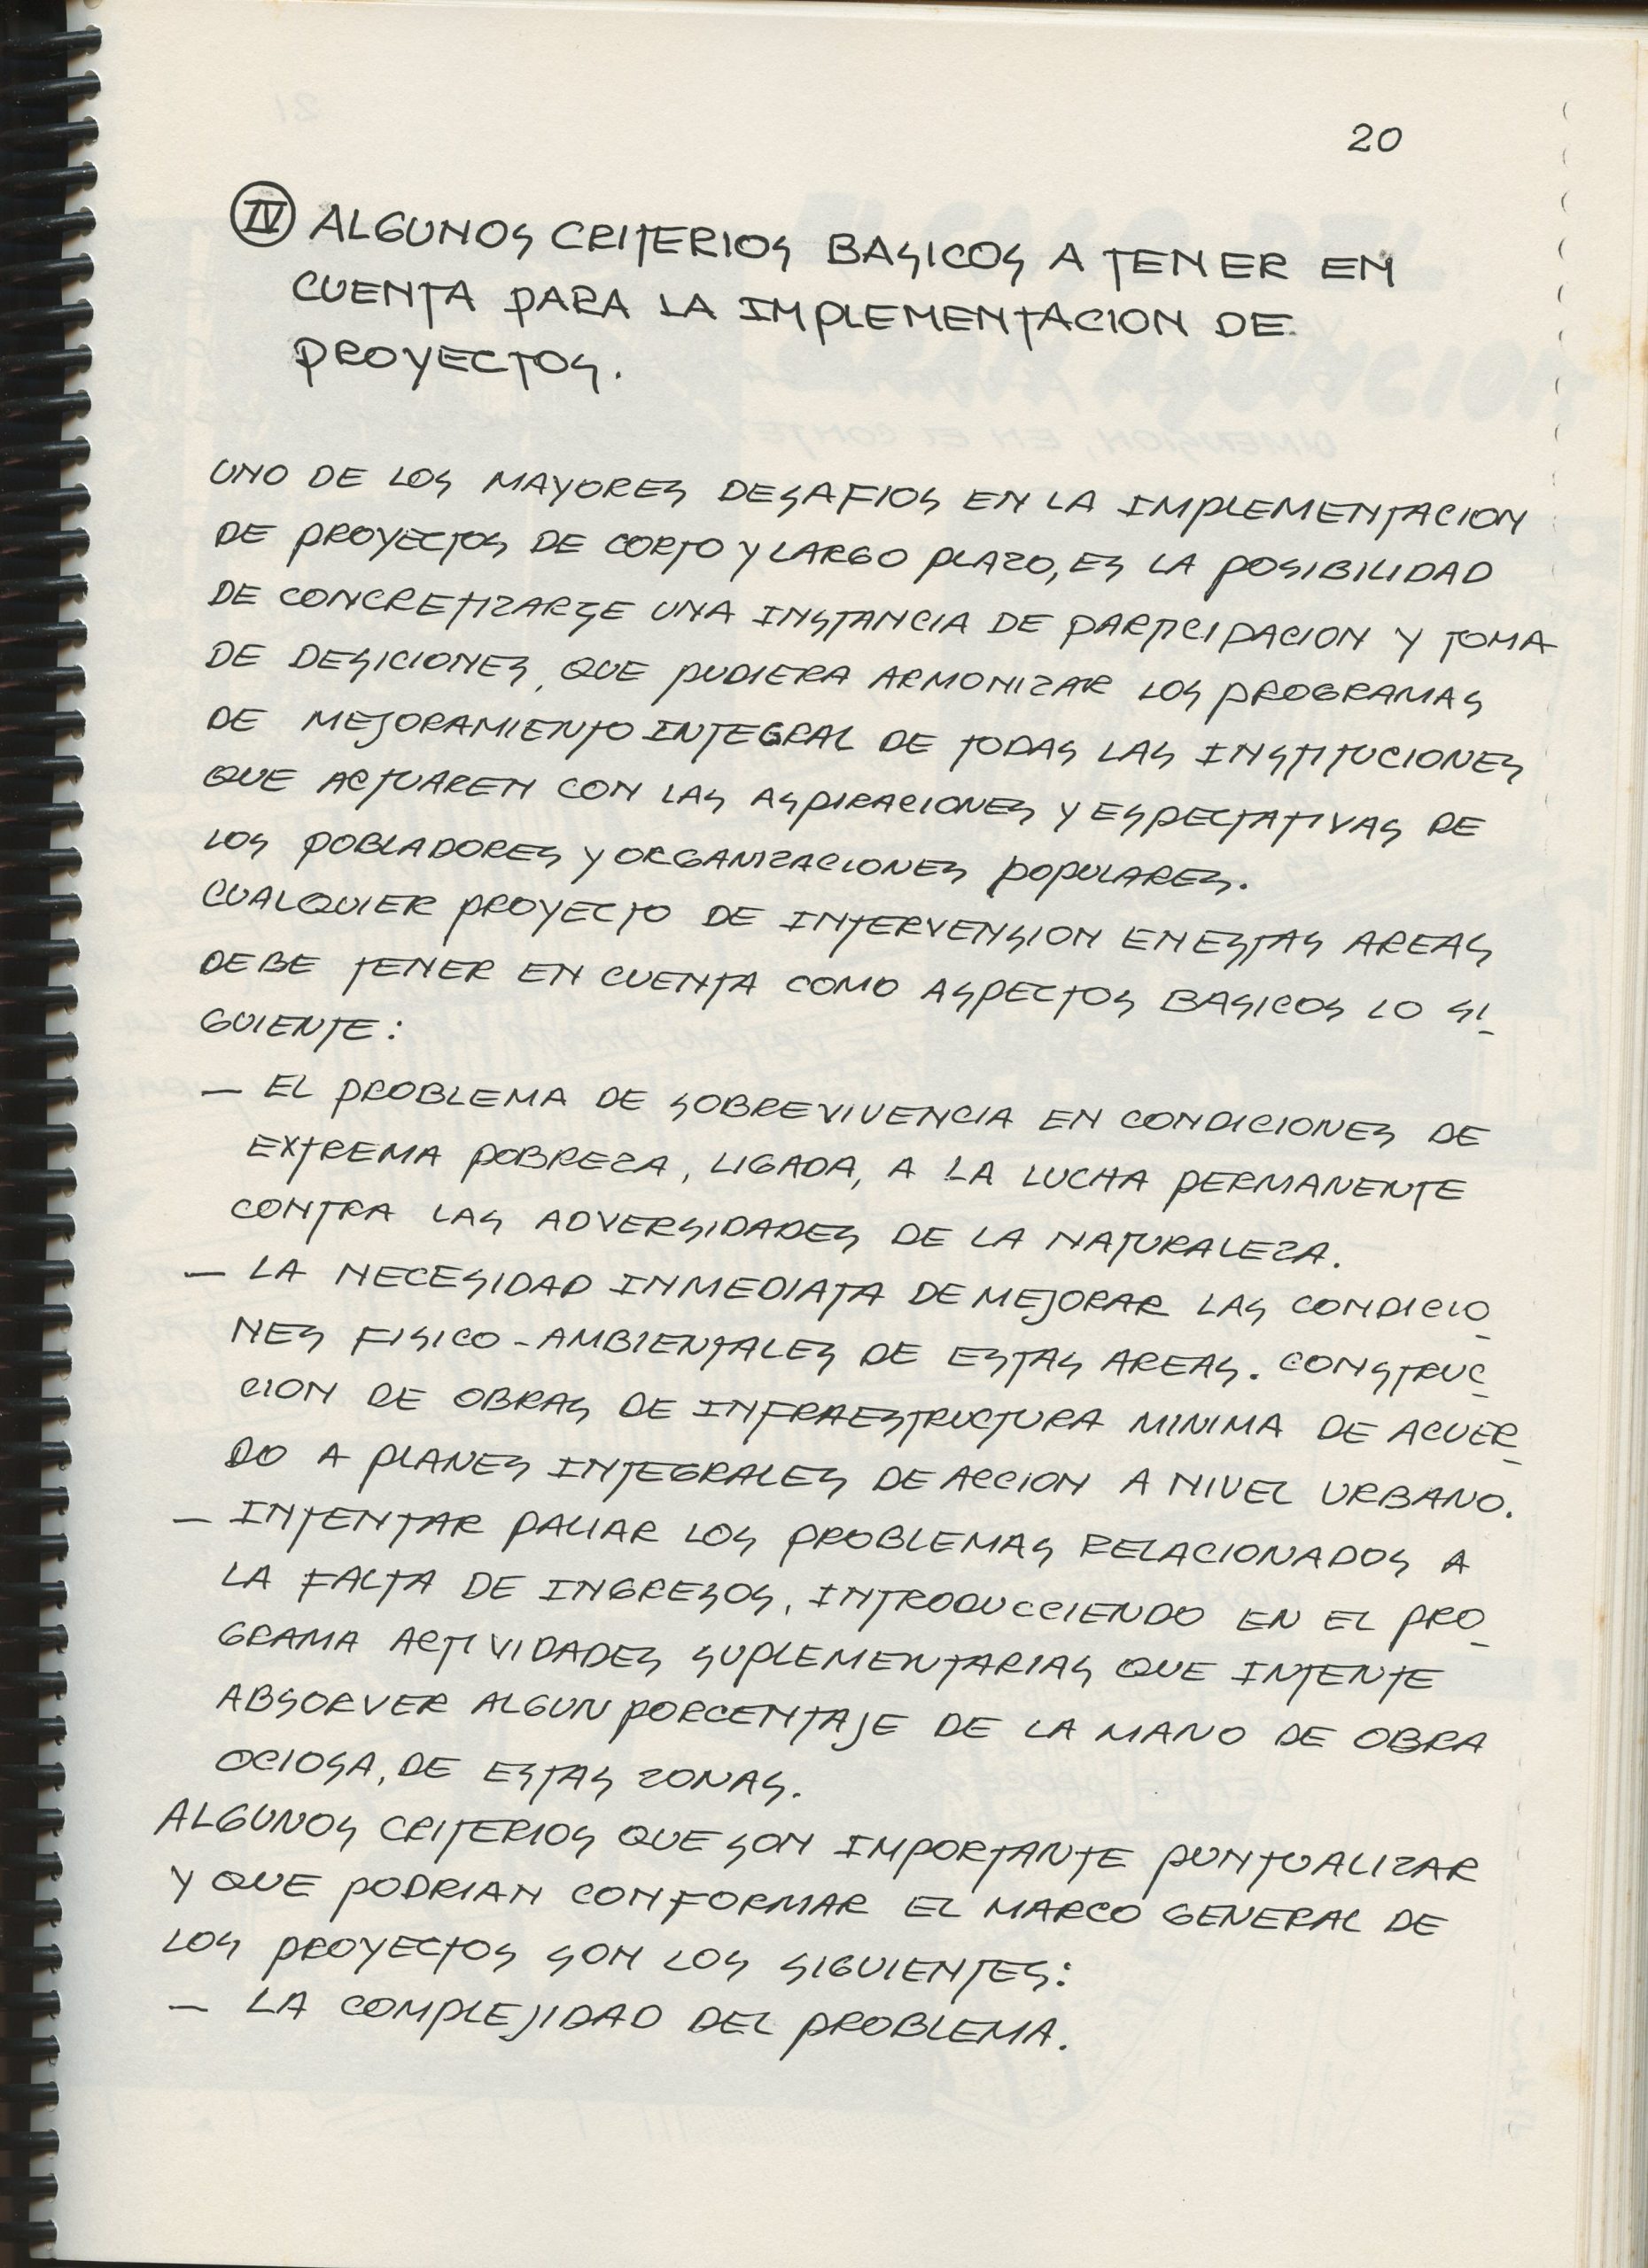 20
IV ALGUNOS CRITERIOS BASICOS A TENER EN
CUENTA PARA LA IMPLEMENTACION DE
PROYECTOS.
UNO DE LOS MAYORES DESAFIOS EN LA IMPLEMENTACION
DE PROYECTOS DE CORTO Y LARGO PLAZO, ES LA POSIBILIDAD
DE CONCRETIZARSE UNA INSTANCIA DE PARTICIPACION Y TOMA
DE DESICIONES, QUE PUDIERA ARMONIZAR LOS PROGRAMAS
DE MEJORAMIENTO INTEGRAL DE TODAS LAS INSTITUCIONES
QUE ACTUAREN CON LAS ASPIRACIONES Y ESPECTATIVAS DE
LOS POBLADORES Y ORGANIZACIONES POPULARES.
CUALQUIER PROYECTO DE INTERVENSION EN ESTAS AREAS
DEBE TENER EN CUENTA COMO ASPECTOS BASICOS LO SI_
GUIENTE:
— EL PROBLEMA DE SOBREVIVENCIA EN CONDICIONES DE
EXTREMA POBREZA, LIGADA, A LA LUCHA PERMANENTE
CONTRA LAS ADVERSIDADES DE LA NATURALEZA.
— LA NECESIDAD INMEDIATA DE MEJORAR LAS CONDICIO_
NES FISICO-AMBIENTALES DE ESTAS AREAS. CONSTRUC_
CION DE OBRAS DE INFRAESTRUCTURA MINIMA DE ACUER_
DO A PLANES INTEGRALES DE ACCION A NIVEL URBANO.
— INTENTAR PALIAR LOS PROBLEMAS RELACIONADOS A
LA FALTA DE INGRESOS, INTRODUCCIENDO EN EL PRO_
GRAMA ACTIVIDADES SUPLEMENTARIAS QUE INTENTE
ABSORVER ALGUN PORCENTAJE DE LA MANO DE OBRA
OCIOSA, DE ESTAS ZONAS.
ALGUNOS CRITERIOS QUE SON IMPORTANTE PUNTUALIZAR
Y QUE PODRIAN CONFORMAR EL MARCO GENERAL DE
LOS PROYECTOS SON LOS SIGUIENTES:
— LA COMPLEJIDAD DEL PROBLEMA.